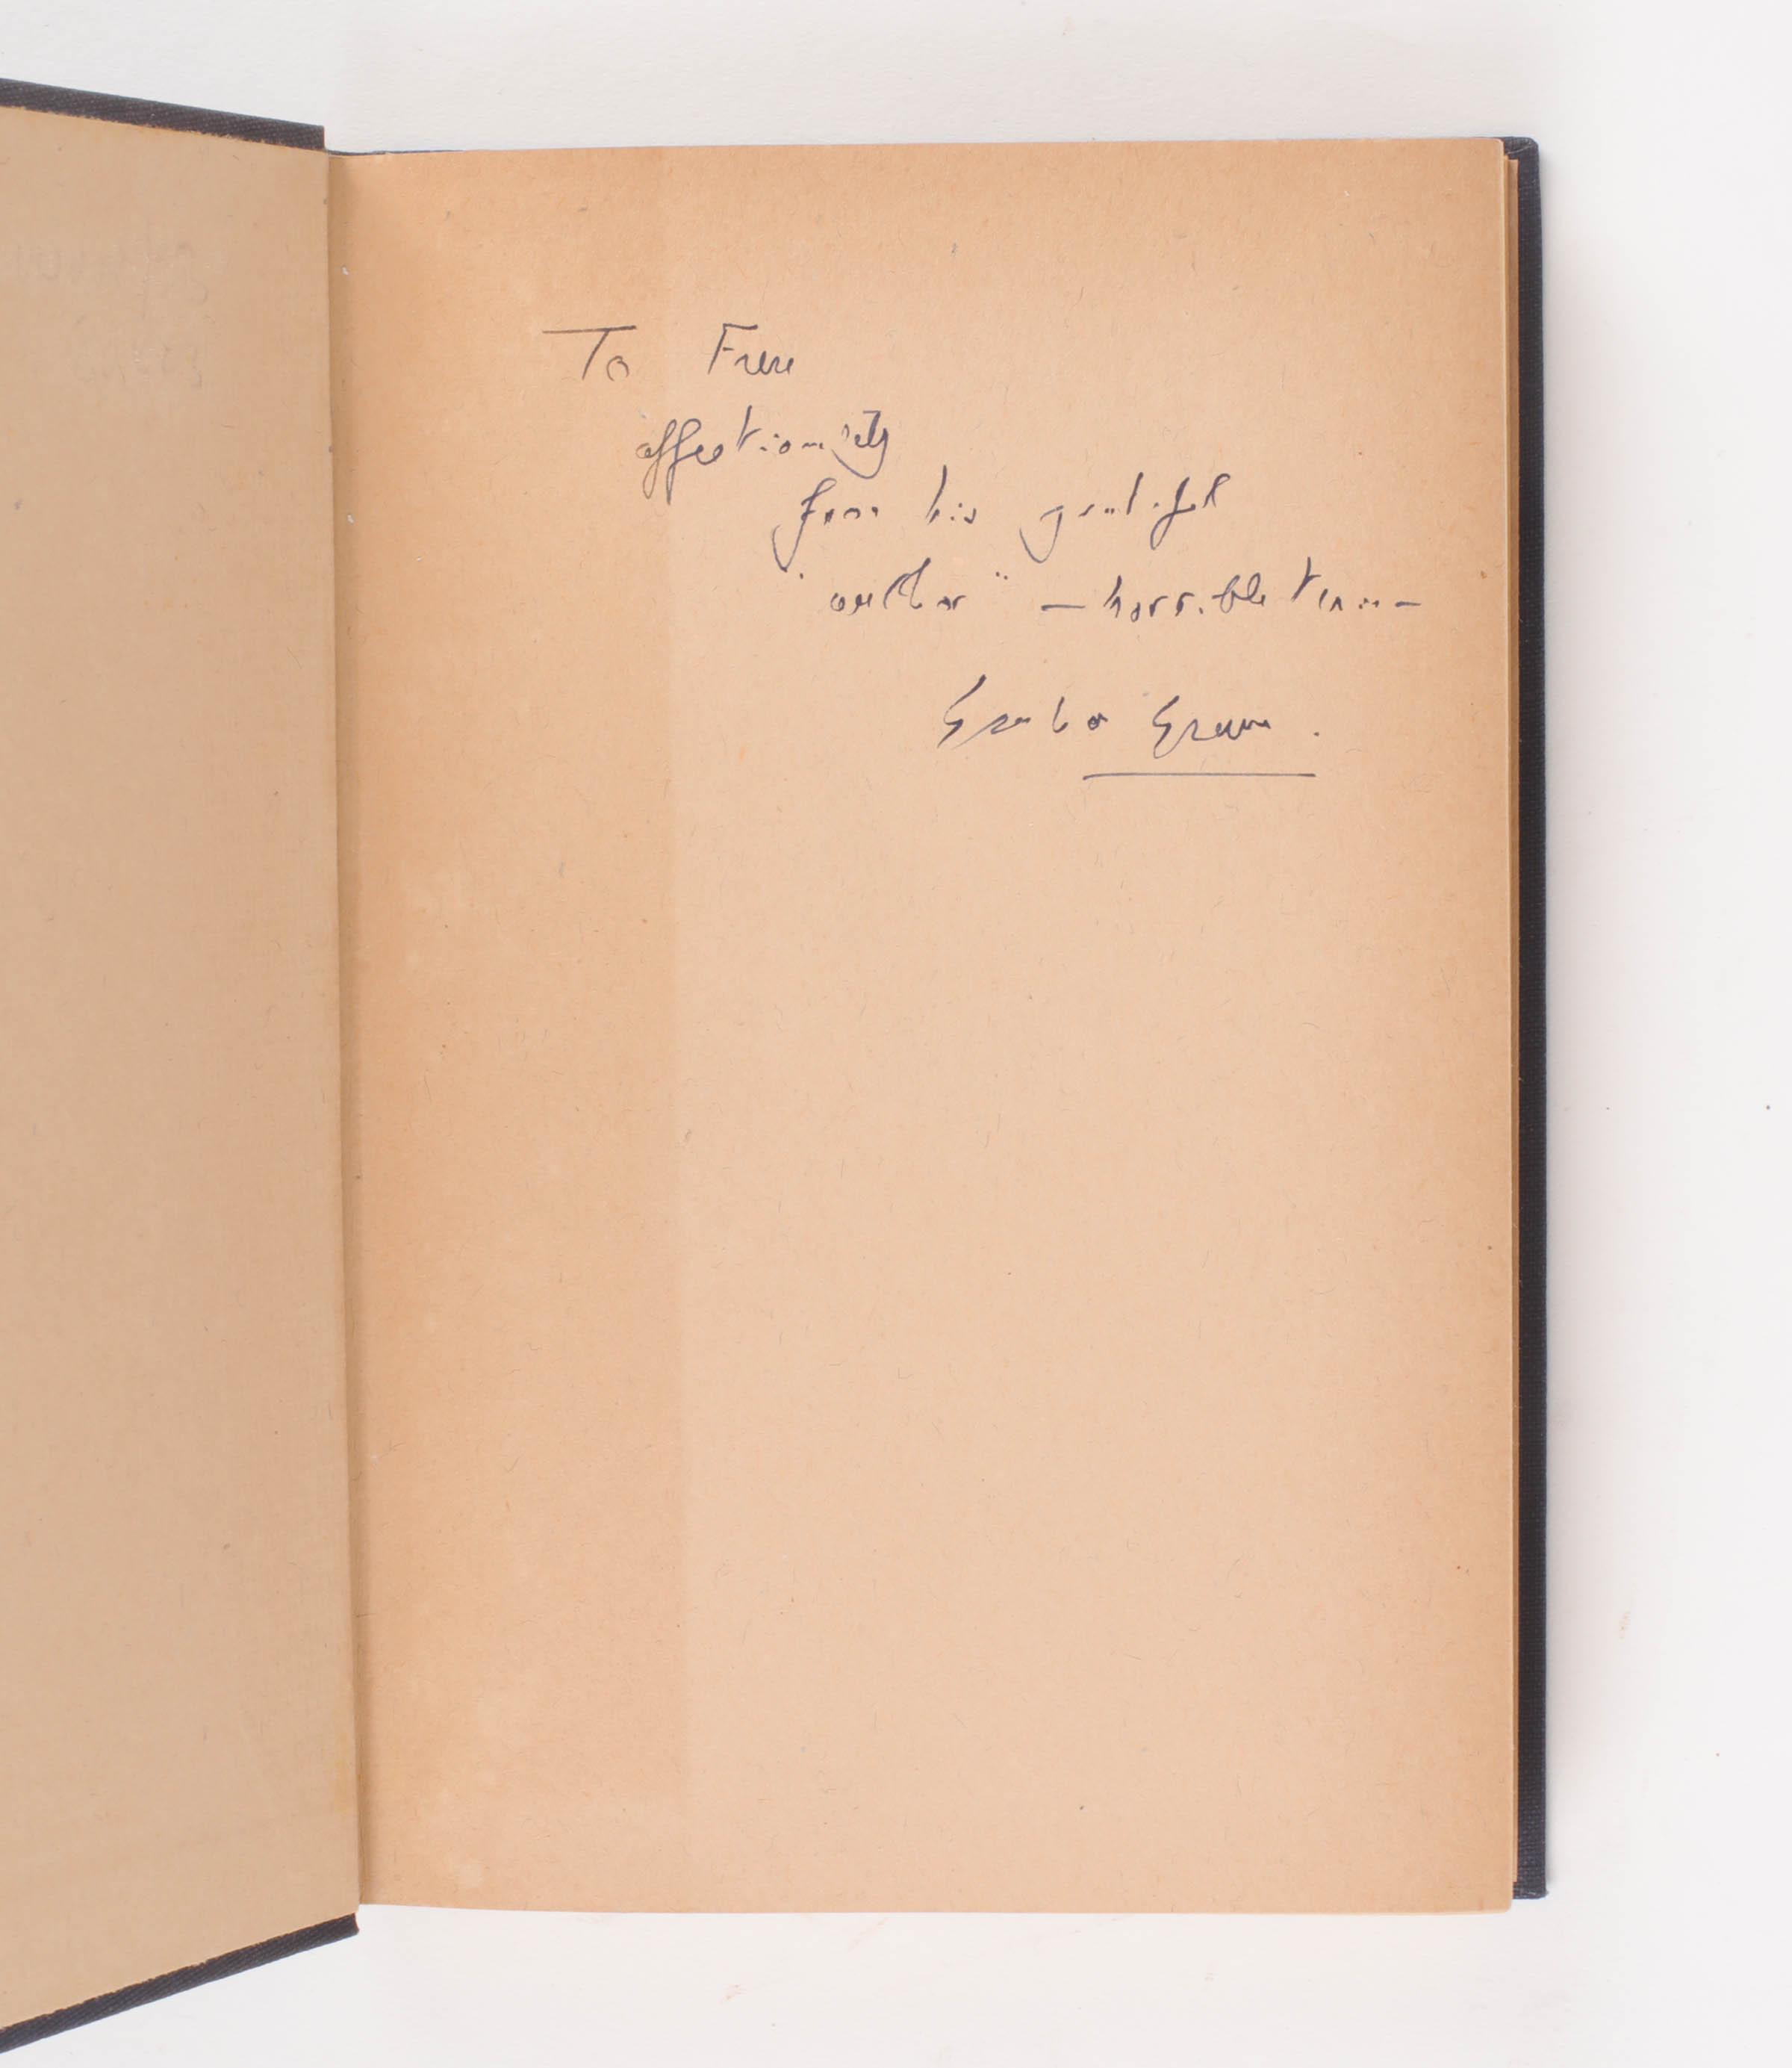 To Frere
affectionately
from his grateful
"author" – horrible term –
Graham Greene.